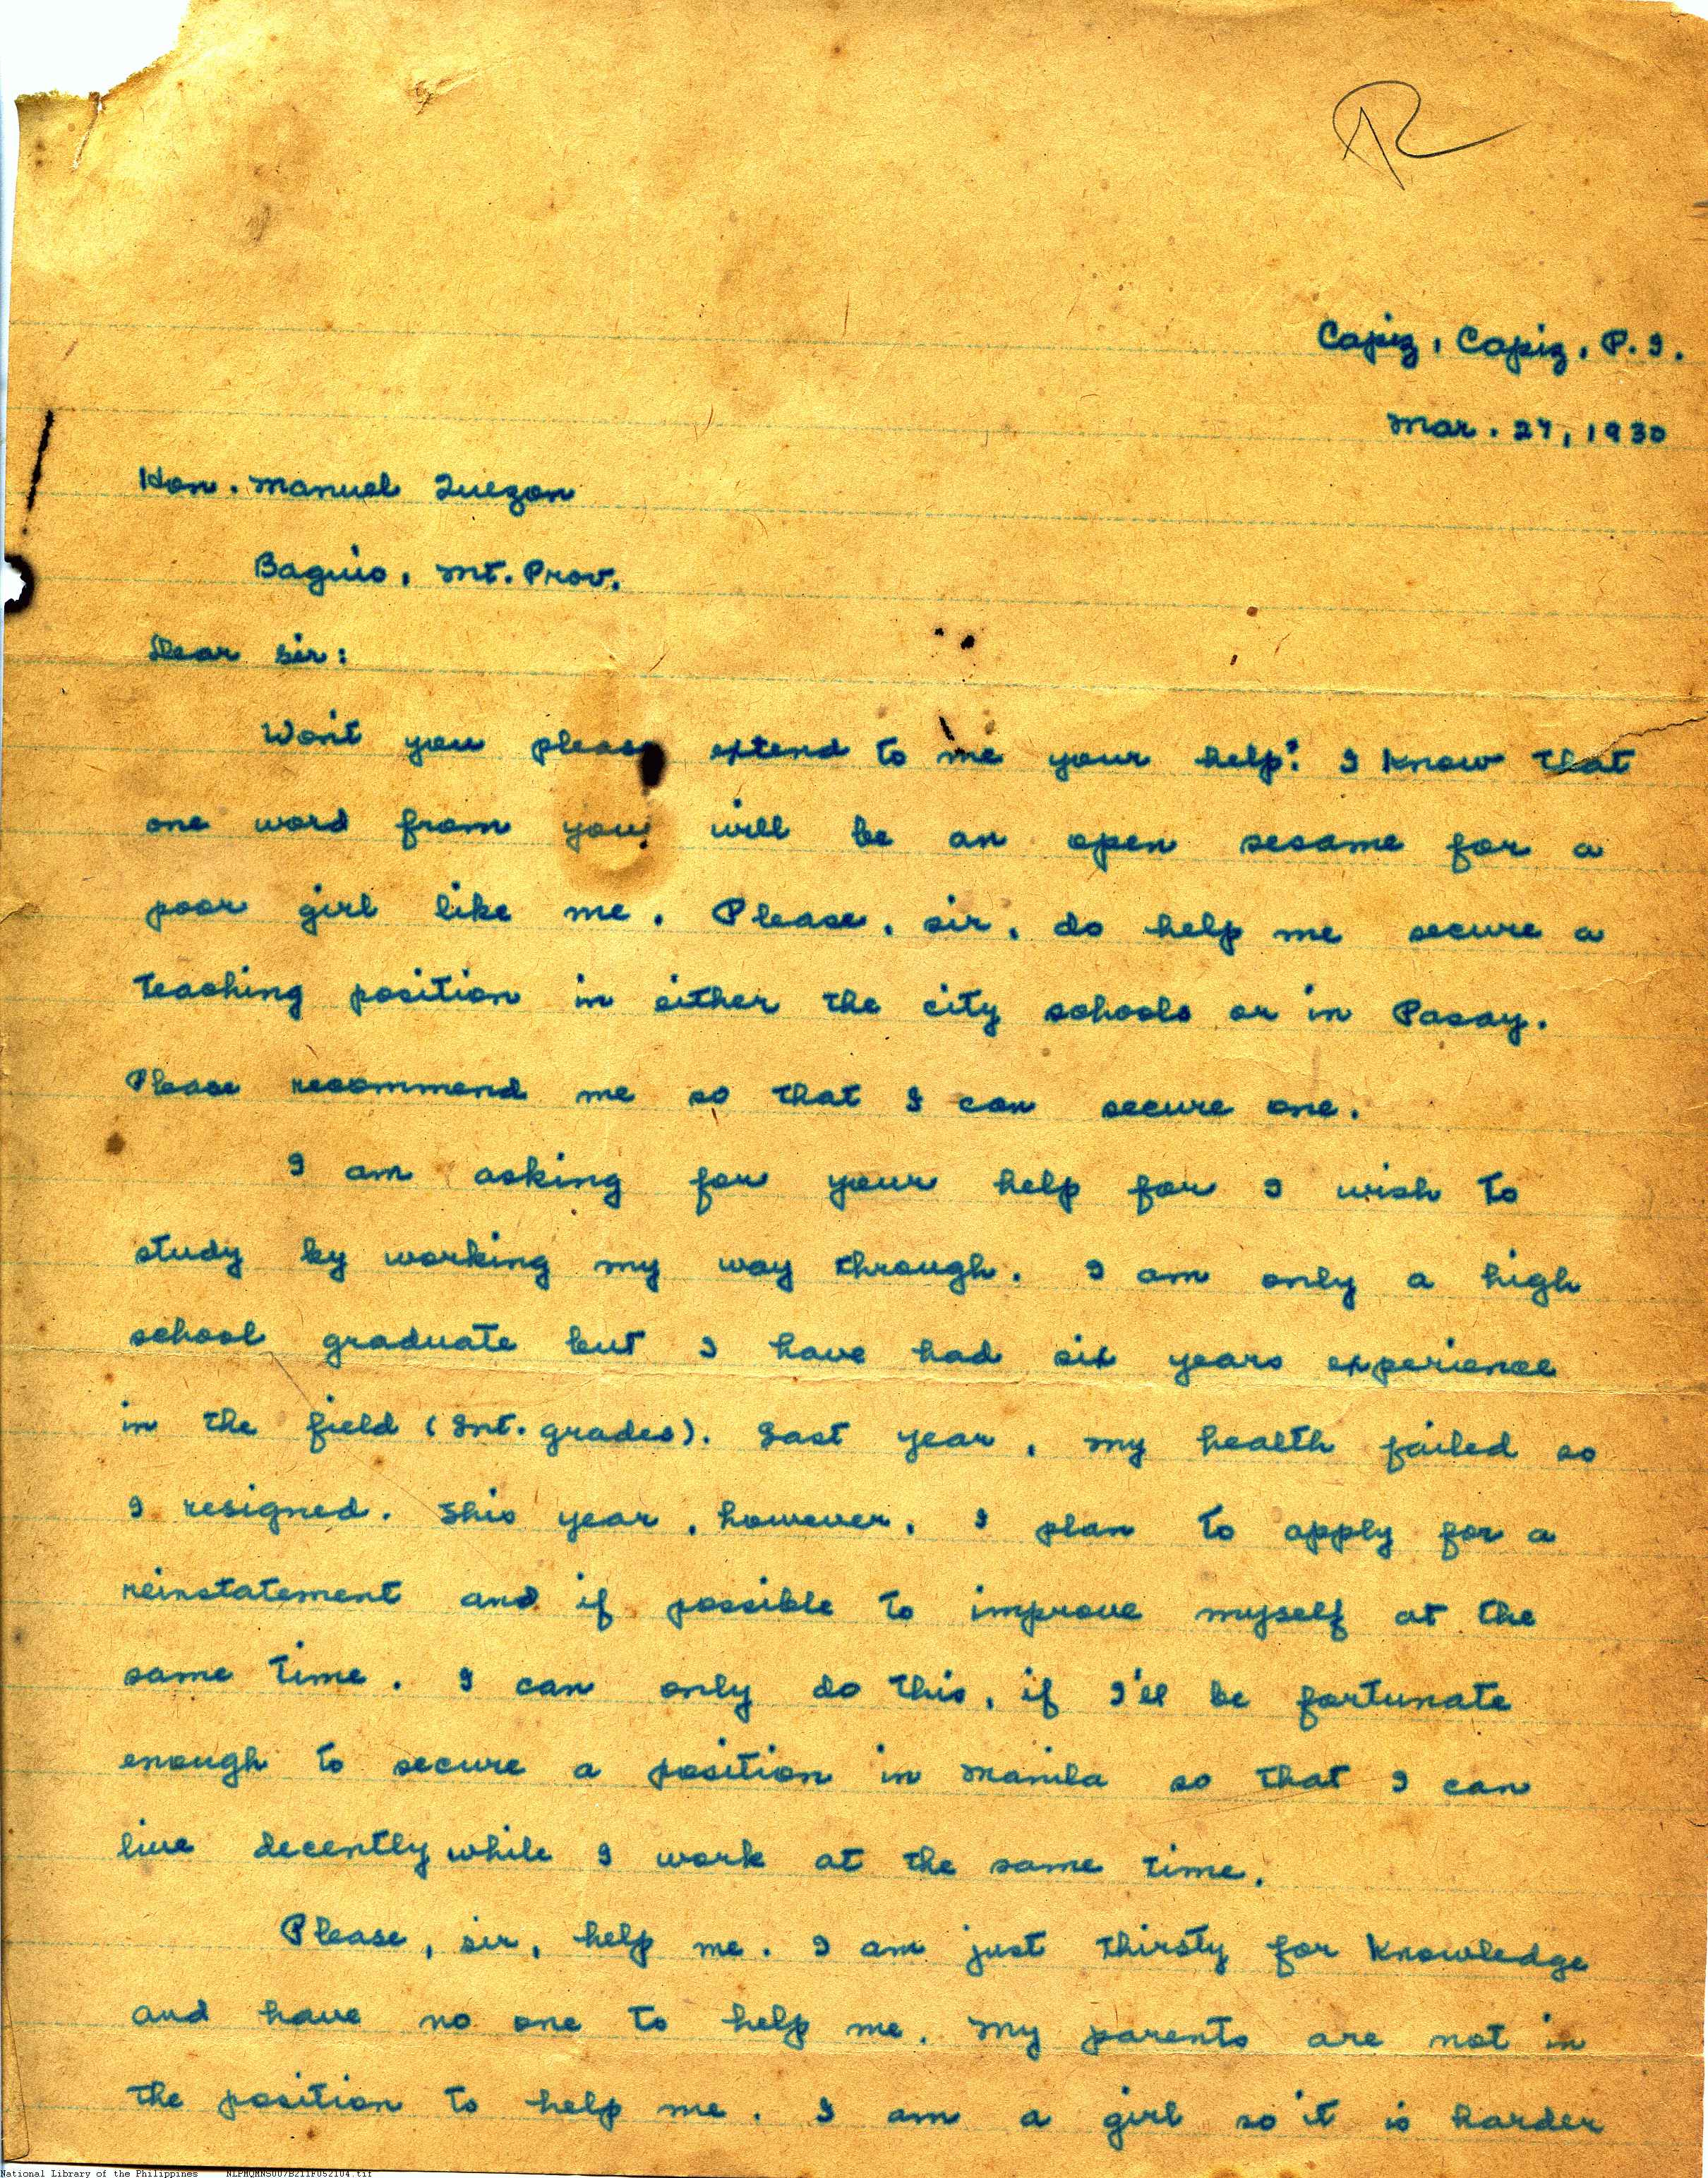 R
Capiz, Capiz, P.I.
Mar. 27, 1930
Hon. Manuel Quezon
Baguio, Mt. Prov.
Dear sir:
Won't you please extend to me your help? I know that
one word from you will be an open sesame for a
poor girl like me. Please, sir, do help me secure a
teaching position in either the city schools or in Pasay.
Please recommend me so that I can secure one.
I am asking for your help for I wish to
study by working my way through. I am only a high
school graduate but I have had six years experience
in the field (Int. grades). Last year, my health failed so
I resigned. This year, however, I plan to apply for a
reinstatement and if possible to improve myself at the
same time. I can only do this, if I'll be fortunate
enough to secure a position in Manila so that I can
live decently while I work at the same time.
Please, sir, help me. I am just thirsty for knowledge
and have no one to help me. My parents are not in
the position to help me. I am a girl so it is harder
National Library of the Philippines NLPMQMNS007B211F052104.tif